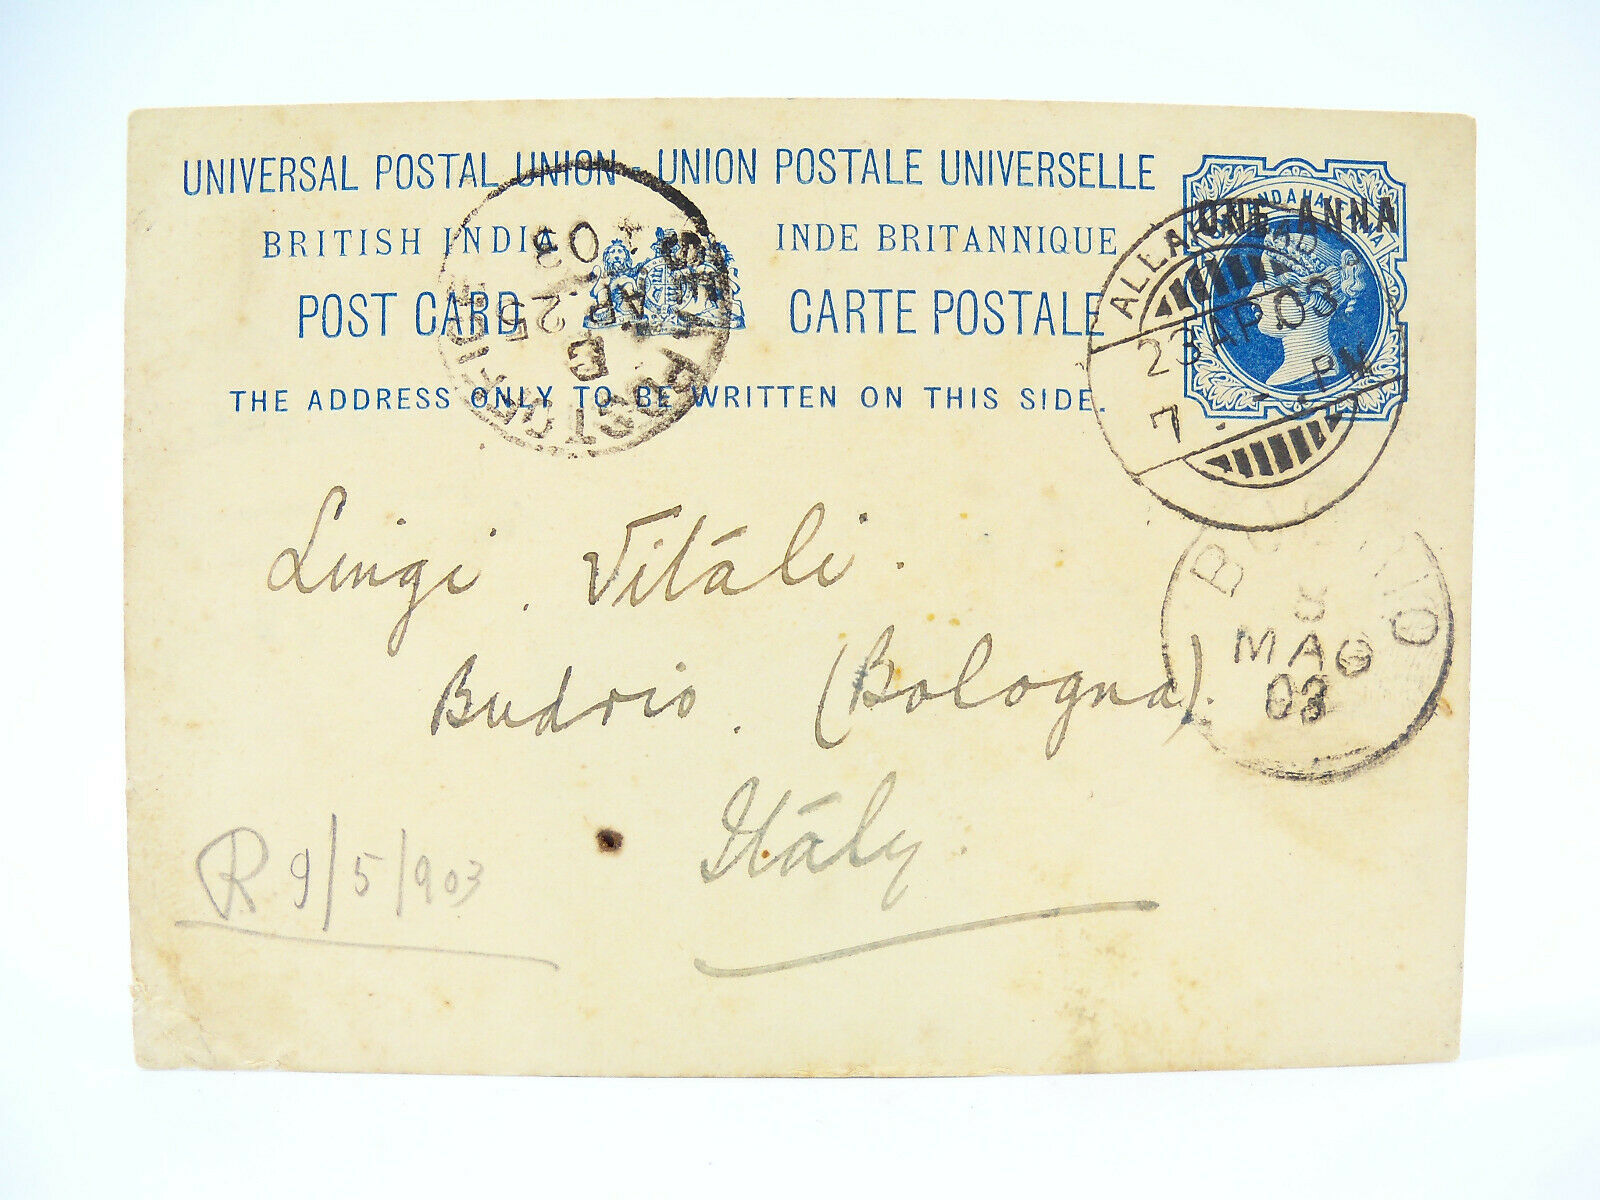 UNIVERSAL POSTAL UNION - UNION POSTALE UNIVERSELLE
BRITISH INDIA INDE BRITANNIQUE
POST CARD CARTE POSTALE
THE ADDRESS ONLY TO BE WRITTEN ON THIS SIDE.
ONE ANNA
23 AP. 03
7 PM
POST OFFICE
E
25 AP
03
BUDRIO
8
MAG
03
Luigi Vitáli.
Budrio. (Bologna).
Itály.
R 9/5/903